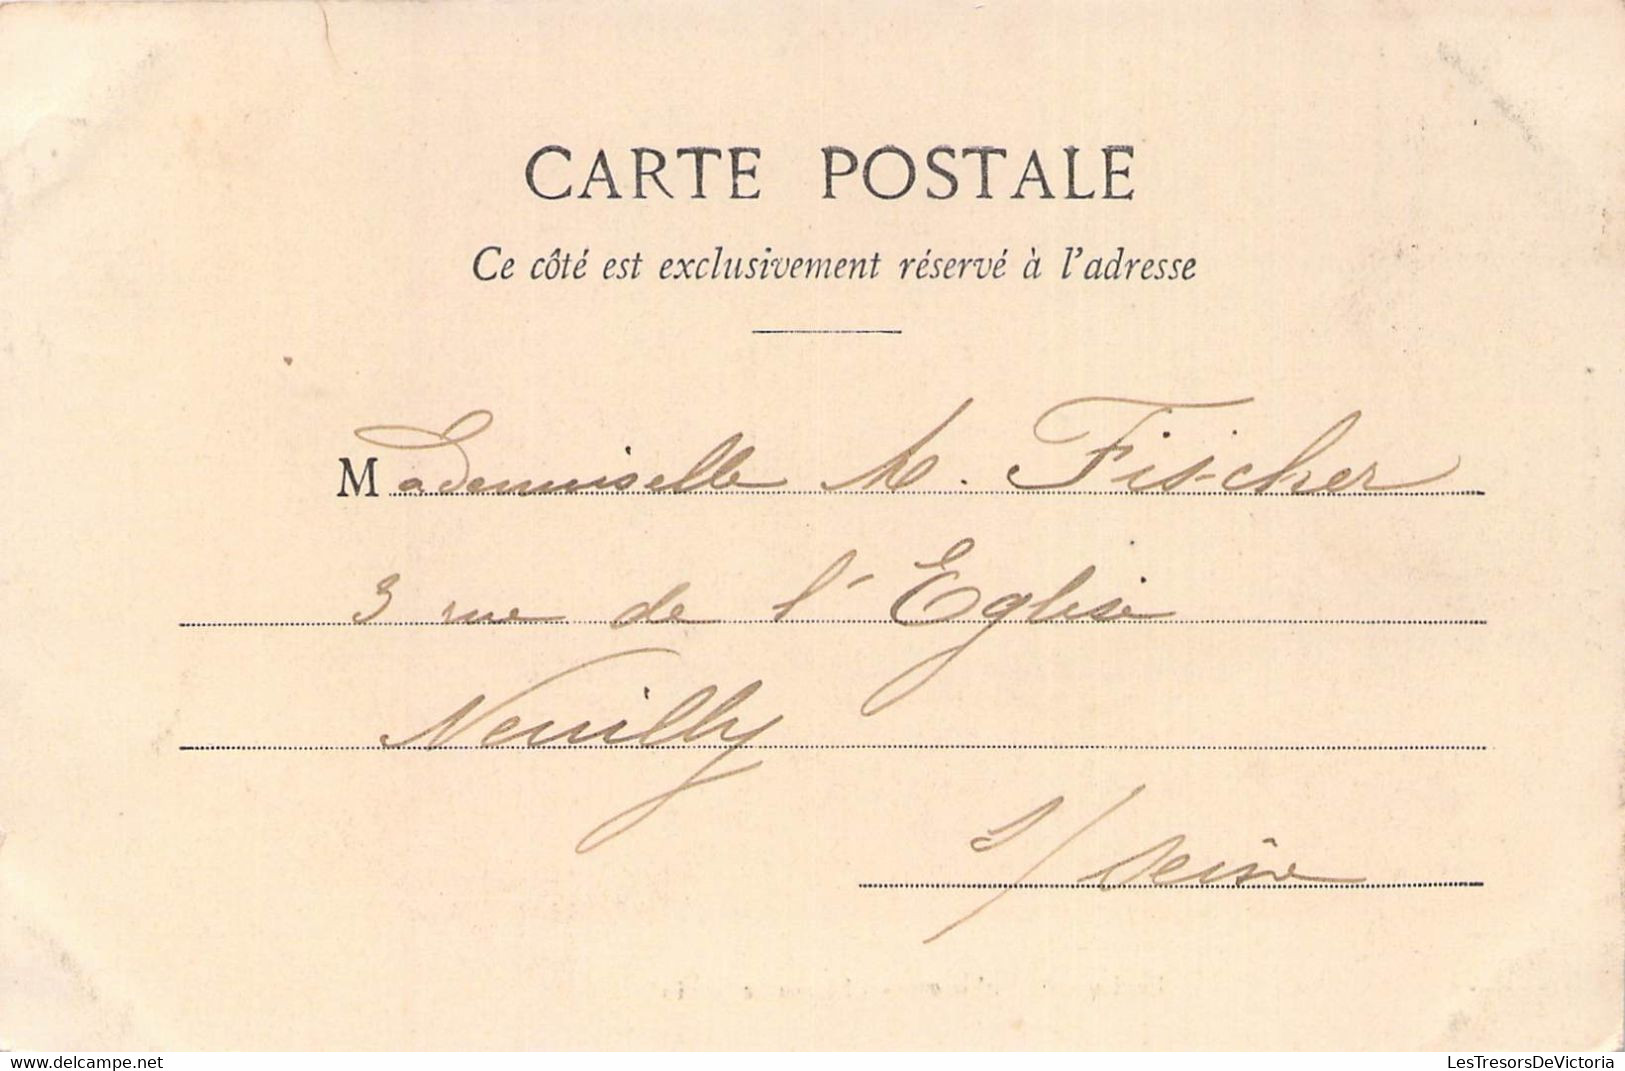 CARTE POSTALE
Ce côté est exclusivement réservé à l'adresse
Mademoiselle A. Fischer
3 rue de l'Eglise
Neuilly
s/ Seine
delcampe.net
LesTresorsDeVictoria